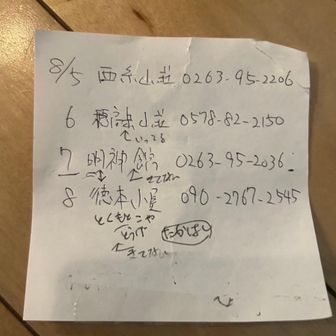 8/5 西糸山荘 0263-95-2206
6 穂高山荘 0578-82-2150
↑いってる
7 明神館 0263-95-2036
↑きてない
8 徳本小屋 090-2767-2545
とくもとこや
たかはし
↑きてない